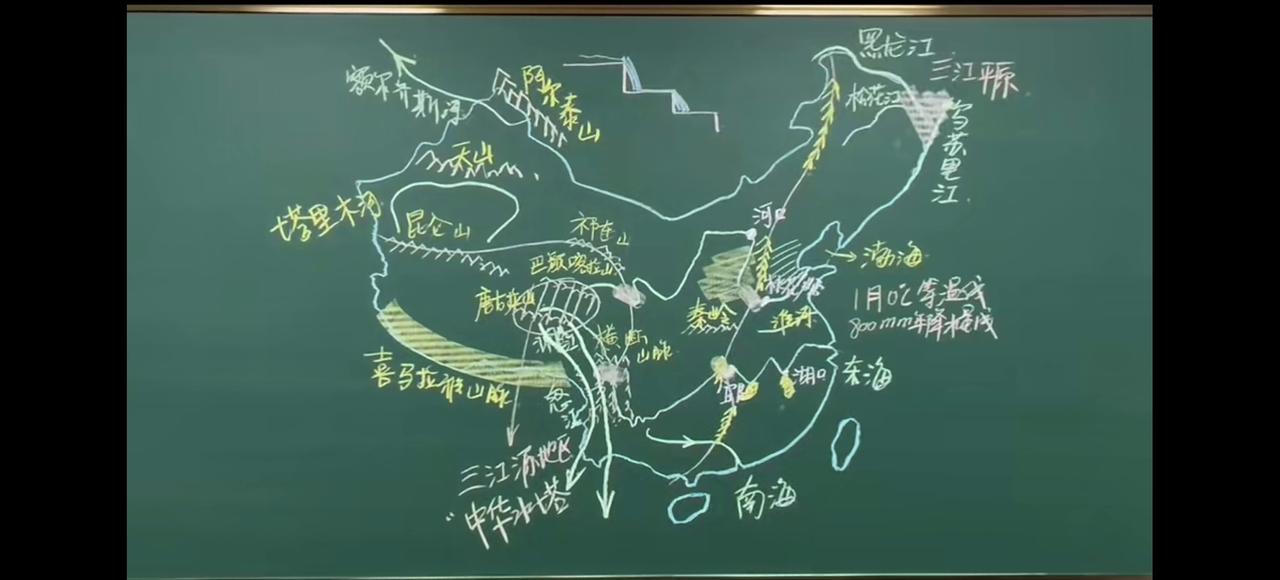 黑龙江
三江平原
额尔齐斯河
阿尔泰山
松花江
乌苏里江
天山
塔里木河
昆仑山
祁连山
河口
渤海
巴颜喀拉山
唐古拉山
1月0℃等温线
800mm年降水量线
秦岭
淮河
横断
山脉
喜马拉雅山脉
湖口
东海
怒江
三江源地区
"中华水塔
南海